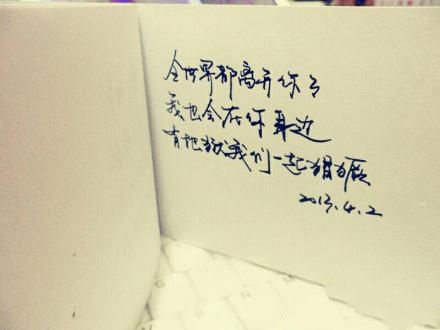 全世界都离开你了
我也会在你身边
有地狱我们一起猖厥
2013.4.2